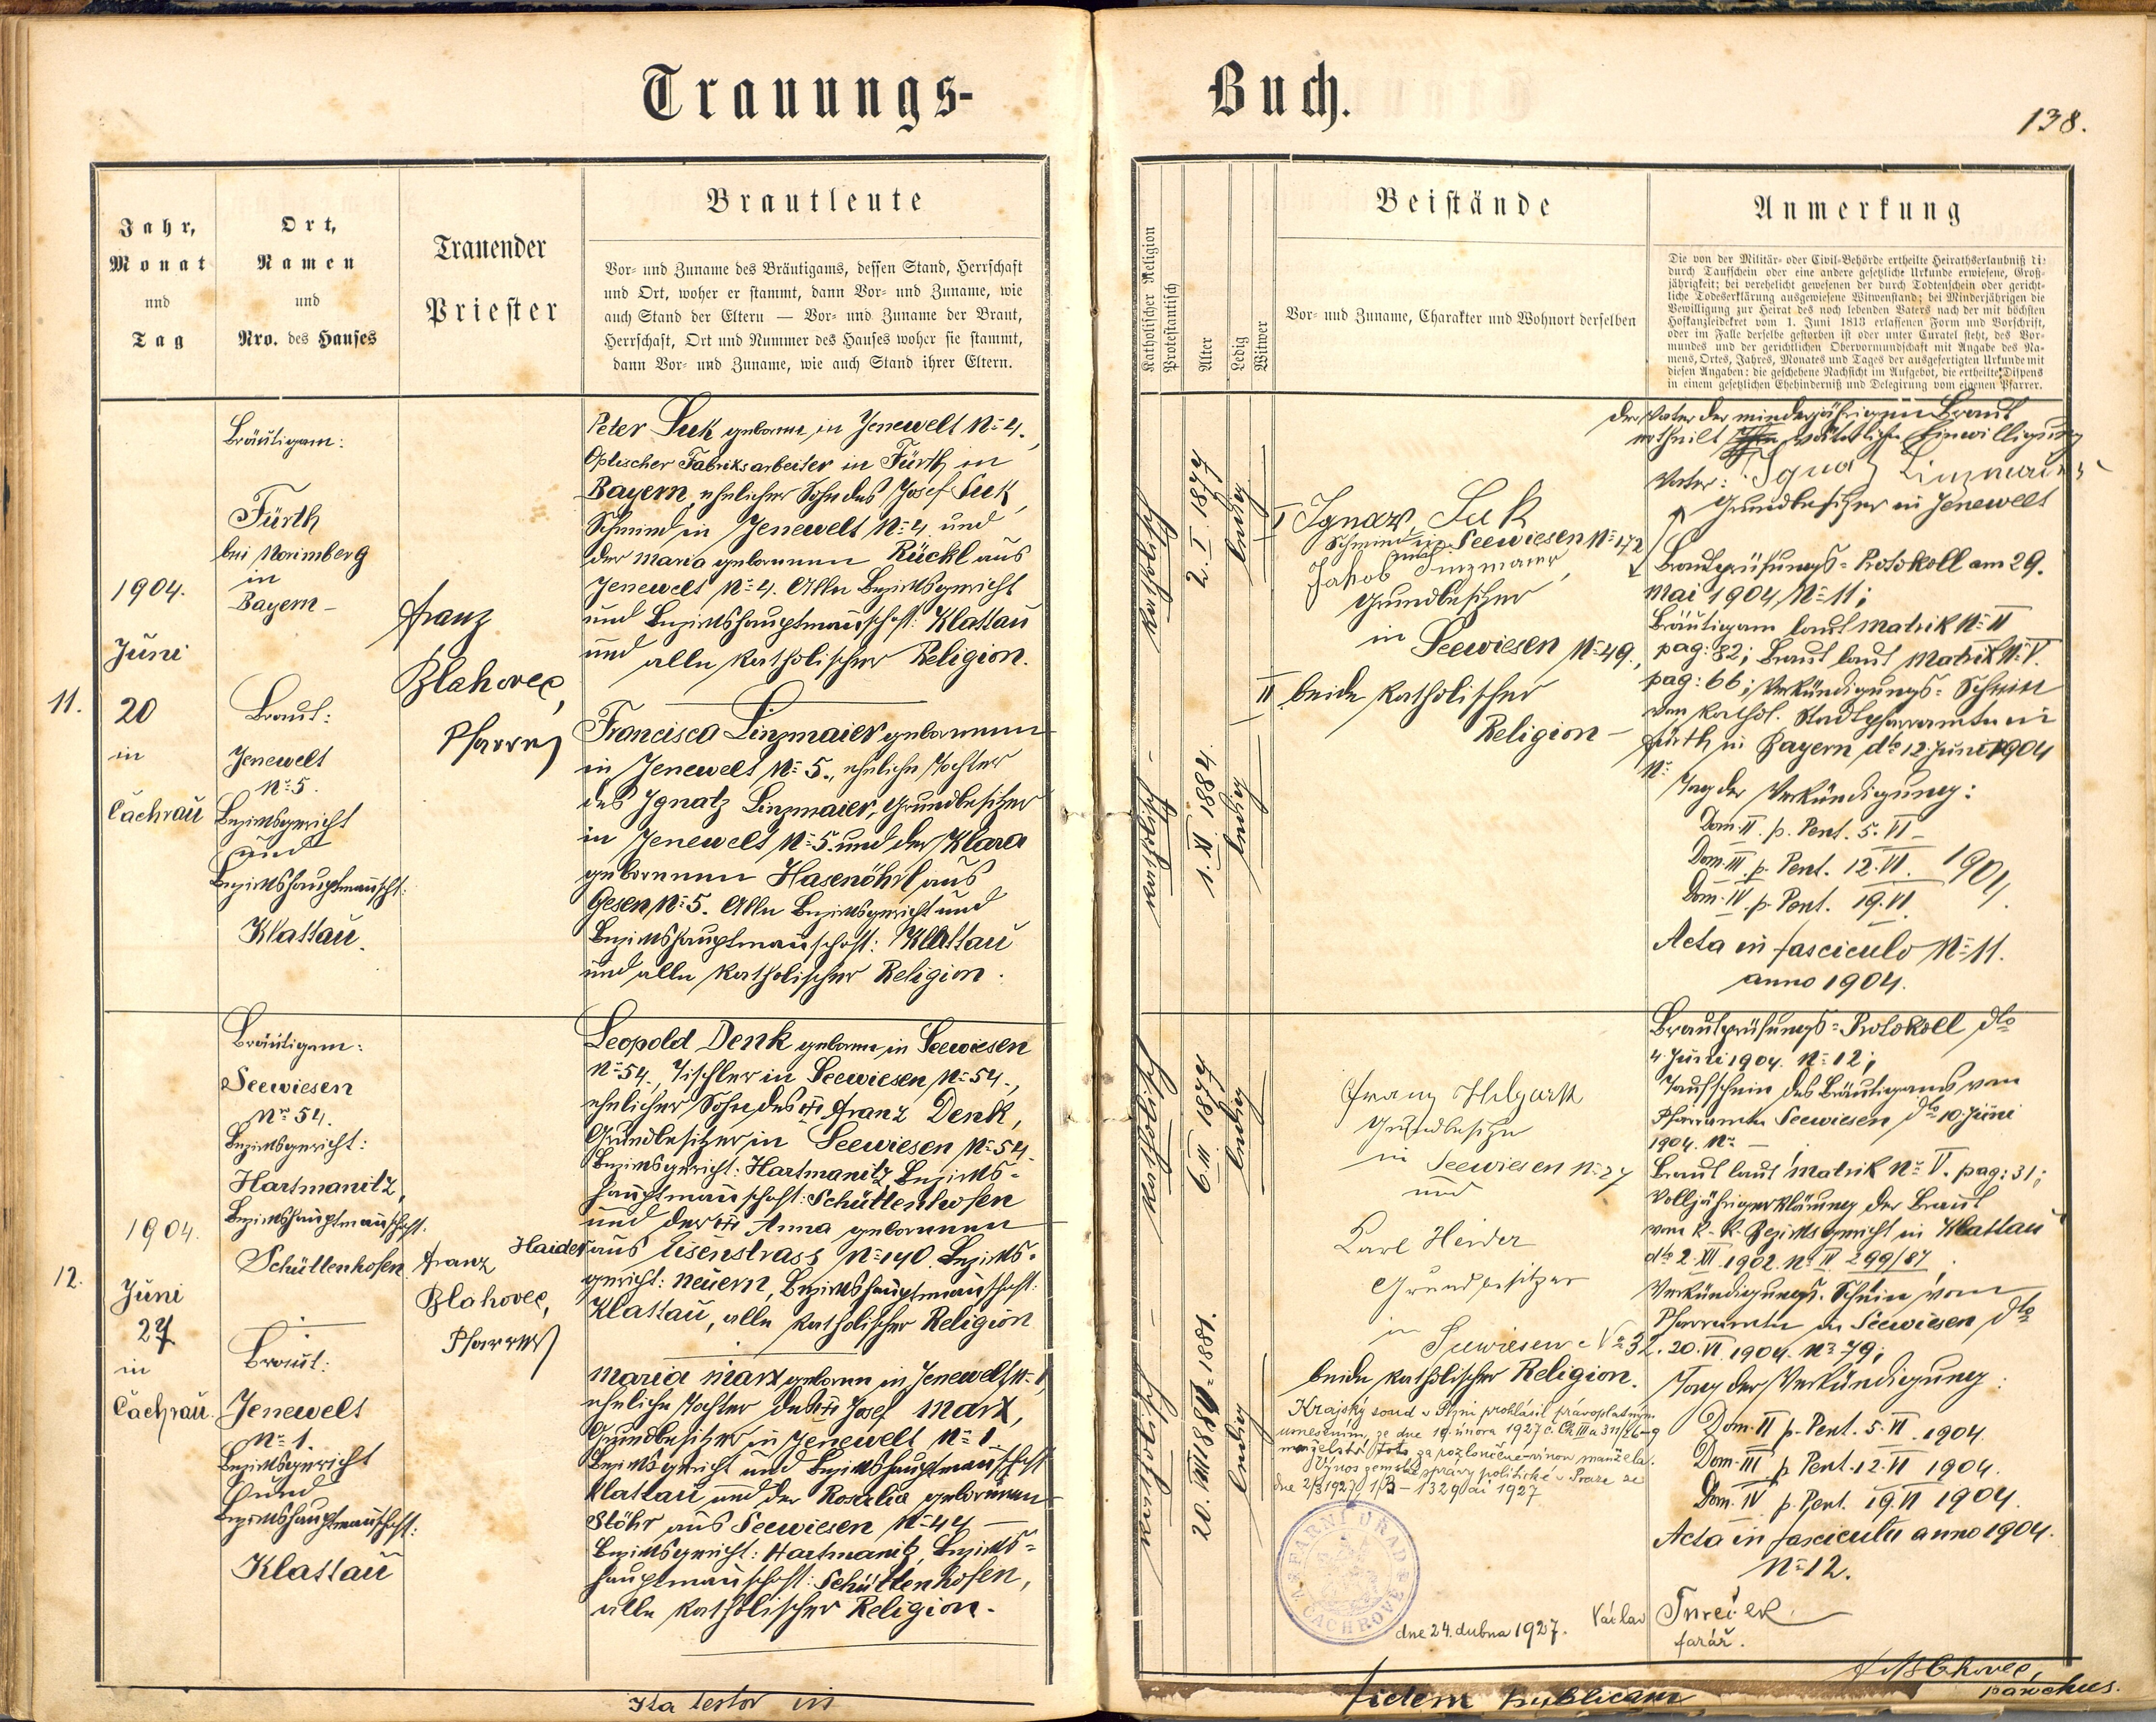 Trauungs-
Buch.
138.
Jahr,
Monat
und
Tag
Ort,
Namen
und
Nro. des Hauses
Trauender
Priester
Brautleute
Vor- und Zuname des Bräutigams, dessen Stand, Herrschaft
und Ort, woher er stammt, dann Vor- und Zuname, wie
auch Stand der Eltern — Vor- und Zuname der Braut,
Herrschaft, Ort und Nummer des Hauses woher sie stammt,
dann Vor- und Zuname, wie auch Stand ihrer Eltern.
Katholischer Religion
Protestantisch
Alter
Ledig
Witwer
Beistände
Vor- und Zuname, Charakter und Wohnort derselben
Anmerkung
Die von der Militär- oder Civil-Behörde ertheilte Heirathserlaubniß die
durch Taufschein oder eine andere gesetzliche Urkunde erwiesene, Groß-
jährigkeit; bei verehelicht gewesenen der durch Todtenschein oder gericht-
liche Todeserklärung ausgewiesene Witwenstand; bei Minderjährigen die
Bewilligung zur Heirat des noch lebenden Vaters nach der mit höchsten
Hofkanzleidekret vom 1. Juni 1813 erlassenen Form und Vorschrift,
oder im Falle derselbe gestorben ist oder unter Curatel steht, des Vor-
mundes und der gerichtlichen Obervormundschaft mit Angabe des Na-
mens, Ortes, Jahres, Monates und Tages der ausgefertigten Urkunde mit
diesen Angaben: die geschehene Nachsicht im Aufgebot, die ertheilte Dispens
in einem gesetzlichen Ehehinderniß und Delegirung vom eigenen Pfarrer.
11.
1904.
Juni
20
in
Čachrau
Bräutigam:
Fürth
bei Nürnberg
in
Bayern –
Braut:
Jenewelt
No 5.
Bezirksgericht
und
Bezirkshauptmannscht:
Klattau.
Franz
Blahovec,
Pfarrer
Peter Suk geboren in Jenewelt No 4.,
Optischer Fabriksarbeiter in Fürth in
Bayern, ehelicher Sohn des Josef Suk,
Schmied in Jenewelt No 4 und
der Maria geborenen Rückl aus
Jenewelt No 4. Alle Bezirksgericht
und Bezirkshauptmannschaft: Klattau
und alle katholischer Religion.
Francisca Linzmaier geborenen
in Jenewelt No 5., eheliche Tochter
des Ignatz Linzmaier, Grundbesitzer
in Jenewelt No 5. und der Klara
geborenen Hasenöhrl aus
Gesen No 5. Alle Bezirksgericht und
Bezirkshauptmannschaft: Klattau
und alle katholischer Religion.
katholisch
2. I. 1877
ledig
katholisch
1. XI. 1884.
ledig
I Ignaz Suk
Schmied in Seewiesen No 172
und
Jakob Linzmaier,
Grundbesitzer
in Seewiesen No 49.,
II beide katholischer
Religion –
Der Vater der minderjährigen Braut
ertheilt väterliche Einwilligung
Vater: Ignatz Linzmaier
Grundbesitzer in Jenewelt
Brautprüfungs-Protokoll am 29.
Mai 1904, No 11;
Bräutigam laut Matrik No II
pag: 82; Braut laut Matrik No V.
pag: 66; Verkündigungs-Schein
vom kathol. Stadtpfarramte in
Fürth in Bayern dto 12. Juni 1904
No
Tag der Verkündigung:
Dom. II. p. Pent. 5. VI –
Dom. III. p. Pent. 12. VI. 1904.
Dom. IV p. Pent. 19. VI.
Acta in fasciculo No 11.
anno 1904.
12.
1904.
Juni
27
in
Čachrau.
Bräutigam:
Seewiesen
No 54.
Bezirksgericht:
Hartmanitz,
Bezirkshauptmannschaft:
Schüttenhofen
Braut:
Jenewelt
No 1.
Bezirksgericht
und
Bezirkshauptmannschaft:
Klattau
Franz
Blahovec,
Pfarrer
Leopold Denk geboren in Seewiesen
No 54., Tischler in Seewiesen No 54.,
ehelicher Sohn des Franz Denk,
Grundbesitzer in Seewiesen No 54.
Bezirksgericht: Hartmanitz, Bezirks-
hauptmannschaft: Schüttenhofen
und der Anna geborenen
Haider aus Eisenstrass No 140. Bezirks-
gericht: Neuern, Bezirkshauptmannschaft:
Klattau, alle katholischer Religion
Maria Marx geboren in Jenewelt No 1,
eheliche Tochter des Josef Marx,
Grundbesitzer in Jenewelt No 1
Bezirksgericht und Bezirkshauptmannschaft
Klattau und der Rosalia geborenen
Stöhr aus Seewiesen No 44 –
Bezirksgericht: Hartmanitz, Bezirks-
hauptmannschaft: Schüttenhofen,
alle katholischer Religion.
katholisch
6. III 1877
ledig
katholisch
20. VIII 1881.
ledig
Franz
Grundbesitzer
in Seewiesen No 27
und
Karl Heider
Grundbesitzer
in
Seewiesen No 32.
beide katholischer Religion.
Krajský soud v Plzni prohlásil pravoplatným
usnesením ze dne 19. února 1927 č. Ck IIIa 311/26-9
manželství toto za rozloučené vinou manžela.
Výnos zemské správy politické v Praze ze
dne 2/3 1927 1/B – 1329 ai 1927
FARNÍ ÚŘAD
V ČACHROVĚ
dne 24. dubna 1927.
Václav Tureček
farář.
Brautprüfungs-Protokoll dto
4. Juni 1904. No 12;
Taufschein des Bräutigams vom
Pfarramte Seewiesen dto 10. Juni
1904. No –
Braut laut Matrik No V. pag: 31;
Volljährigerklärung der Braut
vom k. k. Bezirksgericht in Klattau
dto 2. XII. 1902. No 299/87.
Verkündigungs-Schein vom
Pfarramte in Seewiesen dto
20. VI 1904. No 79;
Tag der Verkündigung:
Dom. II p. Pent. 5. VI. 1904.
Dom. III. p. Pent. 12. VI 1904.
Dom. IV p. Pent. 19. VI 1904.
Acta in fasciculu anno 1904.
No 12.
Ita testor in
fidem publicam
Blahovec,
parochus.